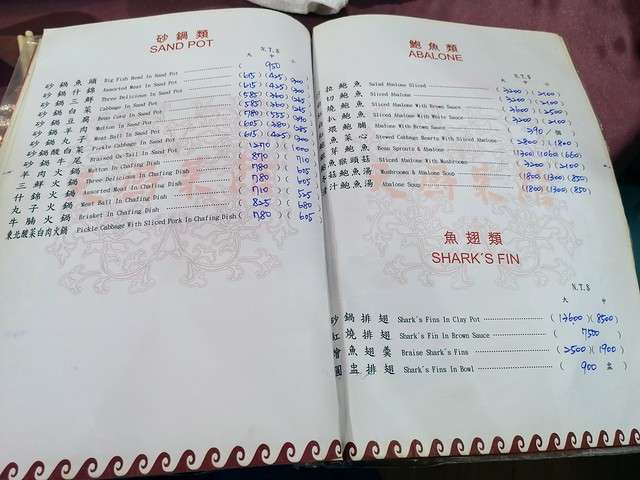 砂鍋類
SAND POT
N.T.$
大 中
砂鍋魚頭 Big Fish Head In Sand Pot (950)
砂鍋什錦 Assorted Meat In Sand Pot (615)(425)
砂鍋三鮮 Three Delicious In Sand Pot (615)(425)
砂鍋白菜 Cabbage In Sand Pot (585)(360)
砂鍋豆腐 Bean Curd In Sand Pot (585)(360)
砂鍋羊肉 Mutton In Sand Pot (780)(555)
砂鍋丸子 Meat Ball In Sand Pot (605)(380)
砂鍋酸白菜 Pickle Cabbage In Sand Pot (615)(425)
砂鍋牛尾 Braised Ox-Tail In Sand Pot (1270)(1000)
羊肉火鍋 Mutton In Chafing Dish (870)(710)
三鮮火鍋 Three Delicious In Chafing Dish (780)(605)
什錦火鍋 Assorted Meat In Chafing Dish (780)(605)
丸子火鍋 Meat Ball In Chafing Dish (710)(525)
牛腩火鍋 Brisket In Chafing Dish (825)(680)
東北酸菜白肉火鍋 Pickle Cabbage With Sliced Pork In Chafing Dish (780)(605)
鮑魚類
ABALONE
N.T.$
大 中
拉鮑魚 Salad Abalone Sliced (3200)(2100)
切鮑魚 Sliced Abalone (3200)(2100)
燒鮑魚 Sliced Abalone With Brown Sauce (3200)(2100)
扒鮑魚 Sliced Abalone With White Sauce (3200)(2100)
煨鮑脯 Abalone With Brown Sauce (290 個)
魚菜心 Stewed Cabbage Hearts With Sliced Abalone (2800)(1800)
芽鮑魚 Bean Sprouts & Abalone (1300)(1060)(660)
魚猴頭菇 Sliced Abalone With Mushrooms (3200)(2100)
菇鮑魚湯 Mushrooms & Abalone Soup (1800)(1300)(850)
汁鮑魚湯 Abalone Soup (1800)(1300)(850)
魚翅類
SHARK'S FIN
N.T.$
大 中
砂鍋排翅 Shark's Fins In Clay Pot (13600)(8500)
紅燒排翅 Shark's Fin In Brown Sauce (7500)
燴魚翅羹 Braise Shark's Fins (2500)(1900)
盅排翅 Shark's Fins In Bowl (900 盅)